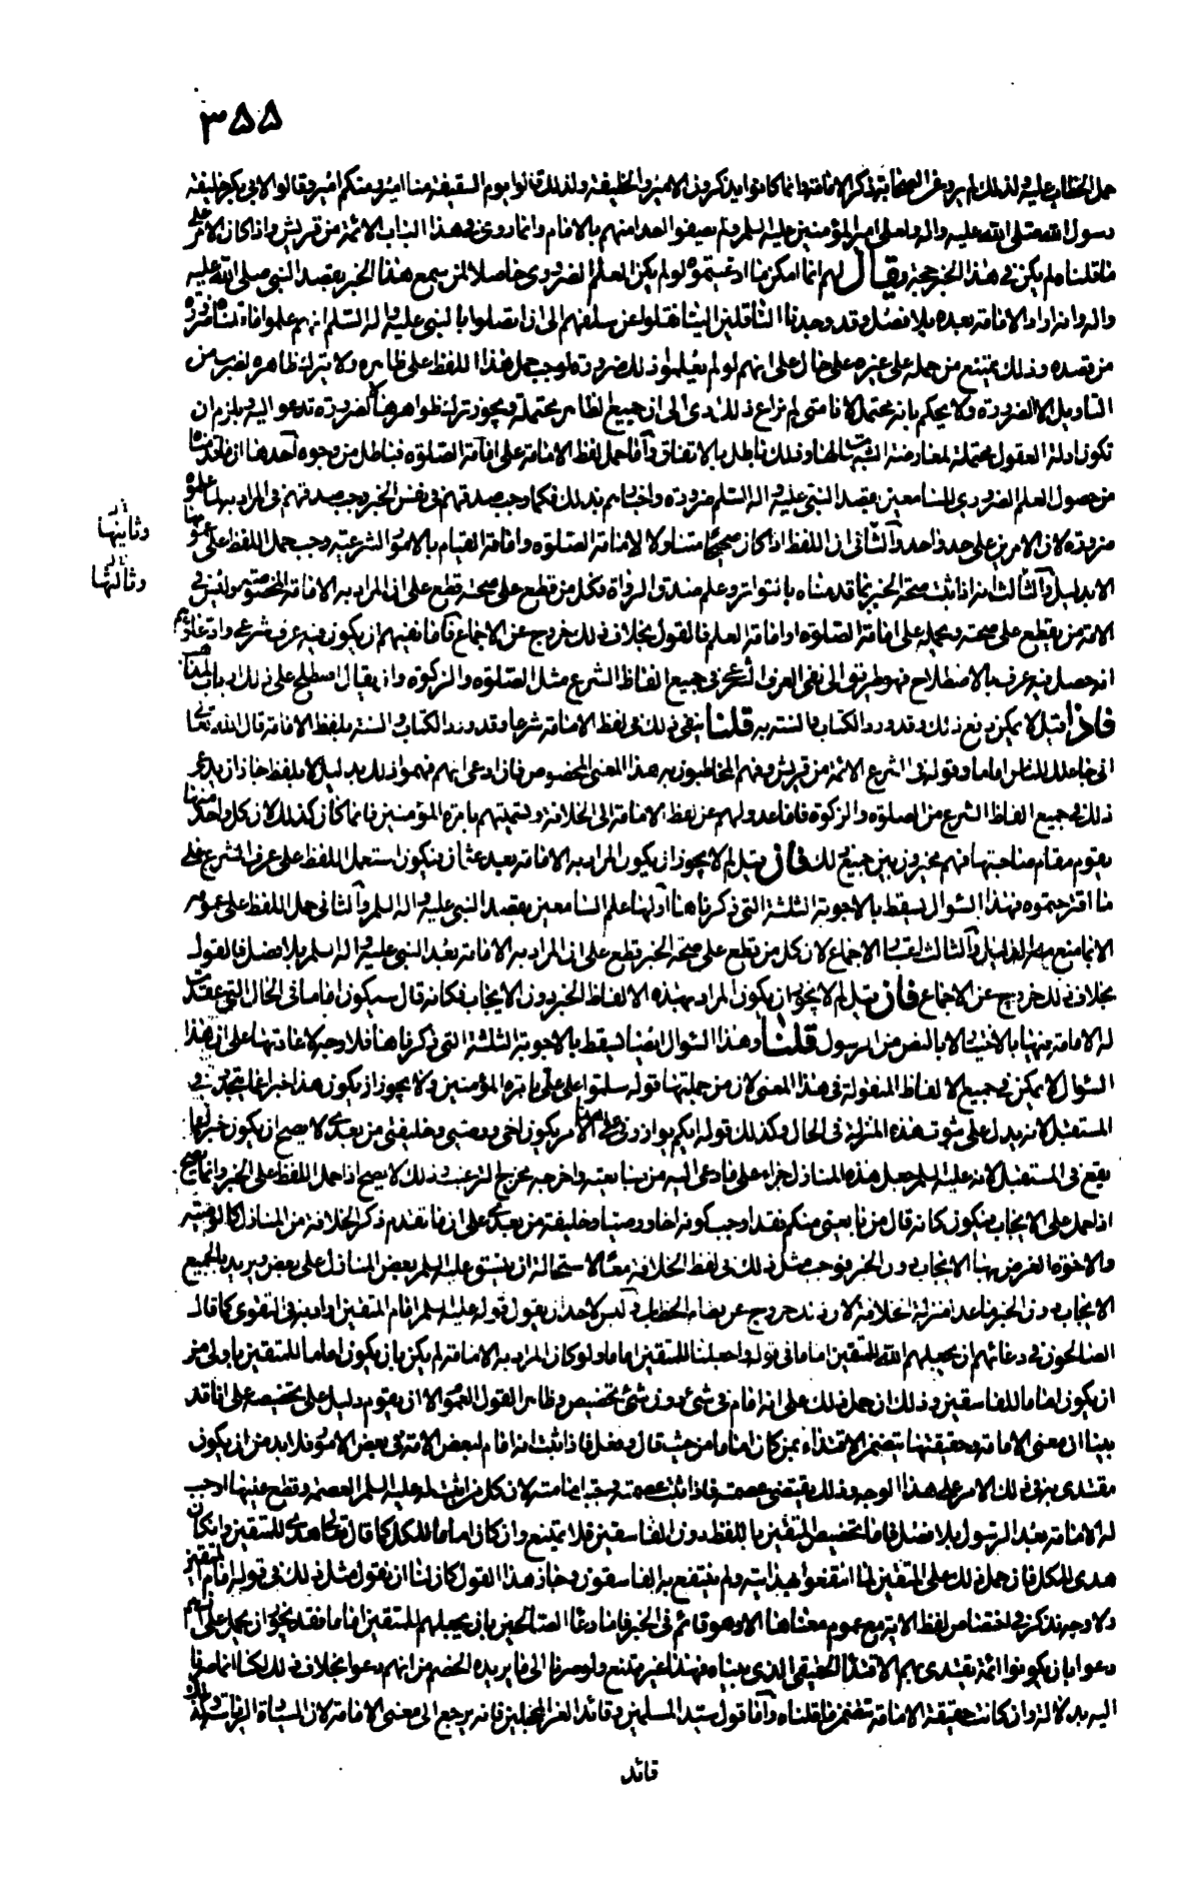 ٣٥٥
حمل الخطاب عليه ولذلك لم يرو عن الصحابة ذكر الامامة وانما كانوا يذكرون الامير والخليفة ولذلك قالوا يوم السقيفة منا امير ومنكم امير وقالوا لابى بكر خليفة
رسول الله صلى الله عليه واله ولعلى امير المؤمنين عليه السلم ولم يصفوا احدا منهم بالامام وانما روى فى هذا الباب الائمة من قريش واذا كان الامر على
ما قلناه لم يكن فى هذا الخبر حجة ويقال لهم انما امكن ما ادعيتموه لو لم يكن العلم الضرورى حاصلا لمن سمع هذا الخبر بقصد النبى صلى الله عليه
واله وانه اراد الامامة بعده بلا فصل وقد وجدنا الناقلين الينا نقلوا عن سلفهم الى ان اتصلوا بالنبى عليه واله السلم انهم علموا ضرورة
من قصده وذلك يمنع من حمله على غيره على حال على انهم لو لم يعلموا ذلك ضرورة لوجب حمل هذا اللفظ على ظاهره ولا يترك ظاهره لضرب من
التاويل الا لضرورة ولا يحكم بانه محتمل لانا متى لم نراع ذلك ادى الى ان جميع الظاهر محتملة ويجوز ترك ظواهرها لا لضرورة تدعو اليه ويلزم ان
تكون ادلة العقول محتملة لمعارضة الشبهات لها وذلك باطل بالاتفاق واما حمل لفظ الامامة على اقامة الصلوة فباطل من وجوه احدها ما قدمناه
من حصول العلم الضرورى للسامعين بقصد النبى عليه واله السلم ضرورة واخبارهم بذلك فكما وجب صدقهم فى نفس الخبر وجب صدقهم فى المراد بها علموه
ضرورة لان الامرين على حد واحد والثانى ان اللفظ اذا كان صحيحا متناولا لامامة الصلوة وامامة القيام بالامور الشرعية وجب حمل اللفظ على عمومها
الا بدليل والثالث انه اذا ثبت صحة الخبر بما قدمناه بالتواتر وعلم صدق الرواة فكل من قطع على صحته قطع على ان المراد به الامامة المخصوصة وليس فى
الامة من يقطع على صحته ويحمله على امامة الصلوة او امامة العلم فالقول بخلاف ذلك خروج عن الاجماع فاما نفيهم ان يكون فيه عرف شرعى وادعاؤهم
انه حصل فيه عرف بالاصطلاح فهو طريق الى نفى العرف الشرعى فى جميع الفاظ الشرع مثل الصلوة والزكوة وان يقال اصطلح على ذلك
فاذا قيل لا يمكن دفع ذلك وقد ورد الكتاب والسنة به قلنا يبقى ذلك فى لفظ الامامة شرعا وقد ورد الكتاب والسنة بلفظ الامامة قال الله تعالى
انى جاعلك للناس اماما وقوله فى الشرع الائمة من قريش وفهم المخاطبون به هذا المعنى المخصوص فان ادعى انهم فهموا ذلك بدليل لا بلفظ جاز ان يدعى
ذلك فى جميع الفاظ الشرع من الصلوة والزكوة فاما عدولهم عن لفظ الامامة الى الخلافة وتسميتهم بامرة المؤمنين فانما كان كذلك لان كل واحد منها
يقوم مقام صاحبتها فهم مخيرون بين جميع ذلك فان قيل لم لا يجوز ان يكون المراد به الامامة بعد عثمان فيكون استعمل اللفظ على عرف الشرع على
ما اقترحتموه فهذا السؤال يسقط بالاجوبة الثلثة التى ذكرناها اولها علم السامعين بقصد النبى عليه واله السلم والثانى حمل اللفظ على عمومه
الا ما منع منه الدليل والثالث الاجماع لان كل من قطع على صحة الخبر قطع على ان المراد به الامامة بعد النبى عليه واله السلم بلا فصل فالقول
بخلاف ذلك خروج عن الاجماع فان قيل لم لا يجوز ان يكون المراد بهذه الالفاظ الخبر دون الايجاب فكانه قال سيكون اماما فى الحال التى عقدت
له الامامة فيها بالاختيار لا بالنص من الرسول قلنا وهذا السؤال ايضا يسقط بالاجوبة الثلثة التى ذكرناها فلا وجه لاعادتها على ان هذا
السؤال لا يمكن فى جميع الالفاظ المنقولة فى هذا المعنى لان من جملتها قوله سلموا على على بامرة المؤمنين ولا يجوز ان يكون هذا خبرا عما يتجدد فى
المستقبل لانه يدل على ثبوت هذه المنزلة فى الحال وكذلك قوله ايكم يوازرنى على هذا الامر يكون اخى ووصيى وخليفتى من بعدى لا يصح ان يكون خبرا عما
يقع فى المستقبل لانه عليه السلم جعل هذه المنازل جزاء على ما دعى اليه من مبايعته واخرجه مخرج الترغيب وذلك لا يصح اذا حمل اللفظ على الخبر وانما يصح
اذا حمل على الايجاب فيكون كانه قال من بايعنى منكم فقد اوجب كونه اخا ووصيا وخليفة من بعدى على ان ما تقدم ذكر الخلافة من المنازل كالوصية
والاخوة الغرض بها الايجاب دون الخبر فوجب مثل ذلك فى لفظ الخلافة معا لاستحالة ان ينسق عليه السلم بعض المنازل على بعض ويريد بالجميع
الايجاب دون الخبر ما عدا منزلة الخلافة لان ذلك خروج عن مضاد الخطاب وليس لاحد ان يقول قوله عليه السلم امام المتقين اراد به فى التقوى كما قال
الصالحون فى دعائهم ان يجعلهم الله للمتقين اماما فى قوله واجعلنا للمتقين اماما ولو كان المراد به الامامة لم يكن بان يكون اماما للمتقين باولى من
ان يكون اماما للفاسقين وذلك ان حمل ذلك على انه امام فى شىء دون شىء تخصيص وظاهر القول العموم الا ان يقوم دليل على تخصيصه على انا قد
بينا ان معنى الامامة وحقيقتها يتضمن الاقتداء بمن كان اماما من حيث قال وفعل فاذا ثبت انه امام لبعض الامة فى بعض الامور فلا بد من ان يكون
مقتدى به فى ذلك الامر على هذا الوجه وذلك يقتضى عصمته فاذا ثبت عصمته وجبت امامته لان كل من اثبت له عليه السلم العصمة وقطع عليها اوجب
له الامامة بعد الرسول بلا فصل فاما تخصيص المتقين باللفظ دون الفاسقين فلا يمتنع وان كان اماما للكل كما قال تعالى هدى للمتقين وان كان
هدى للكل فان حمل ذلك على المتقين لما انتفعوا بهدايته ولم ينتفع به الفاسقون وجاز هذا القول كان لنا ان نقول مثل ذلك فى قوله امام المتقين
ولا وجه نذكر فى اختصاص لفظ الاية مع عموم معناها الا وهو قائم فى الخبر فاما دعاء الصالحين بان يجعلهم للمتقين اماما فقد يجوز ان يحمل على انهم
دعوا بان يكونوا ائمة يقتدى بهم الاقتداء الحقيقى الذى بيناه فهذا غير ممتنع ولو صرنا الى ما يريده الخصم من انهم دعوا بخلاف ذلك لكنا انما صرنا
اليه بدلالة وان كانت حقيقة الامامة تتضمن ما قلناه واما قول سيد المسلمين وقائد الغر المحجلين فانه يرجع الى معنى الامامة لان السيادة
قائد
وثانيها
وثالثها